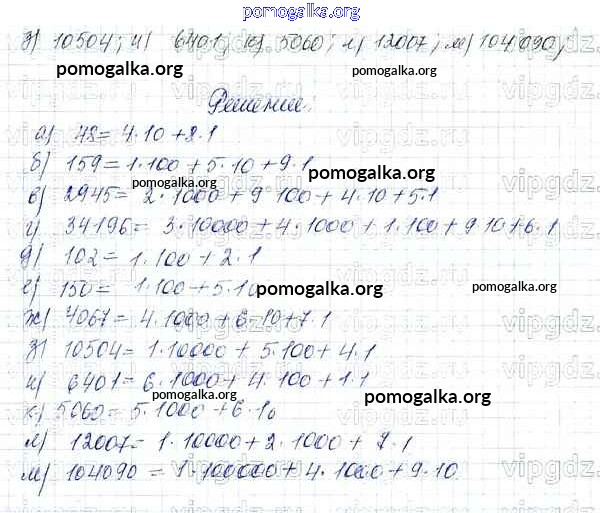 pomogalka.org
з) 10504; и) 6401; к) 5060; л) 12007; м) 104090;
pomogalka.org pomogalka.org
Решение:
а) 48 = 4·10 + 8·1
pomogalka.org
б) 159 = 1·100 + 5·10 + 9·1
pomogalka.org
в) 2945 = 2·1000 + 9·100 + 4·10 + 5·1
г) 34196 = 3·10000 + 4·1000 + 1·100 + 9·10 + 6·1
д) 102 = 1·100 + 2·1
е) 150 = 1·100 + 5·10
pomogalka.org pomogalka.org
ж) 4067 = 4·1000 + 6·10 + 7·1
з) 10504 = 1·10000 + 5·100 + 4·1
и) 6401 = 6·1000 + 4·100 + 1·1
pomogalka.org
к) 5060 = 5·1000 + 6·10
pomogalka.org
л) 12007 = 1·10000 + 2·1000 + 7·1
м) 104090 = 1·100000 + 4·1000 + 9·10
vipgdz.